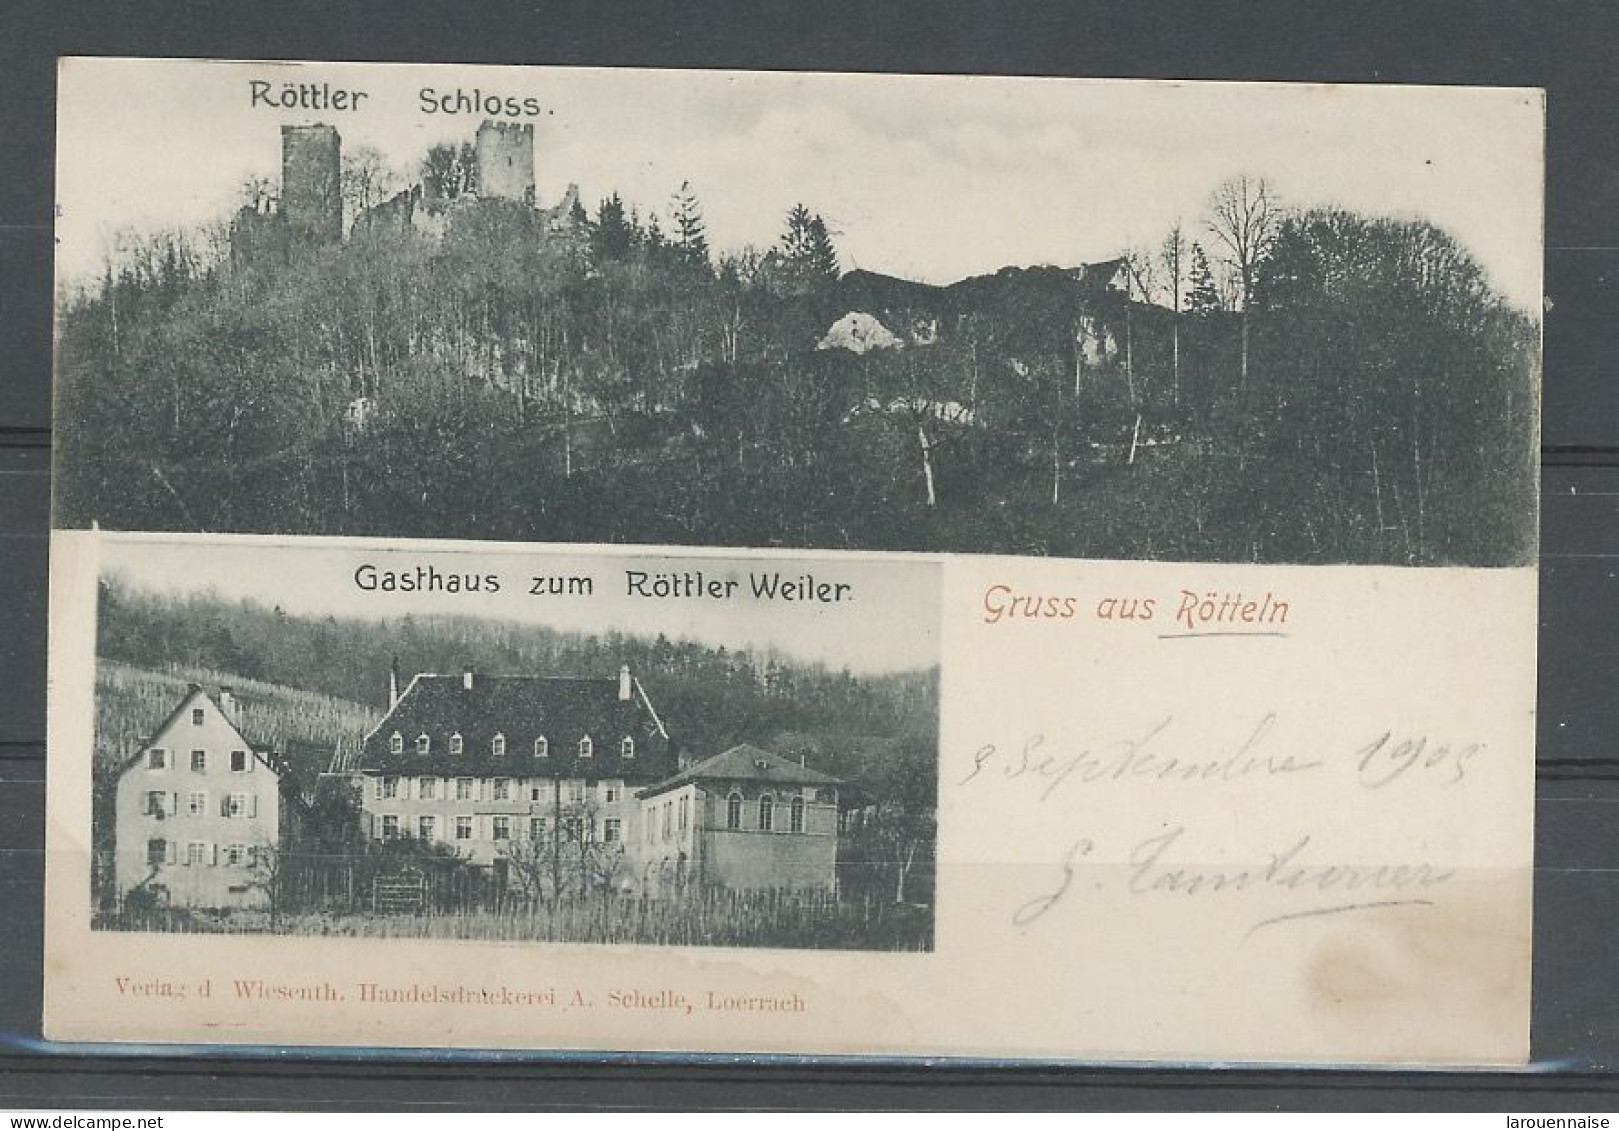 Röttler Schloss.
Gasthaus zum Röttler Weiler.
Gruss aus Rötteln
9 Septembre 1905
Verlag d Wiesenth. Handelsdruckerei A. Schelle, Loerrach
delcampe.net
larouennaise